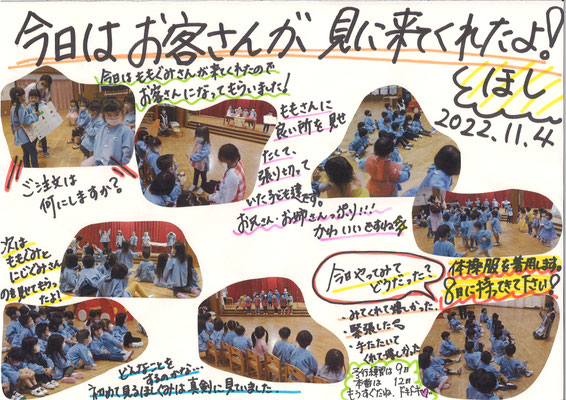 今日はお客さんが見に来てくれたよ!
ほし
2022.11.4
今日はももぐみさんが来てくれたので
お客さんになってもらいました!
ももさんに
良い所を見せ
たくて、
張り切って
いた子ども達です。
お兄さん・お姉さんっぽり!!!
かわいいですね
ご注文は
何にしますか?
次は
ももぐみと
にじぐみさん
のを見せてもらっ
たよ!
どんなことを
するのかな…
初めて見るほしぐみは真剣に見ていました。
今日やってみて
どうだった?
・みてくれて嬉しかった。
・緊張した
・手をたたいて
くれて嬉しかった
体操服を着用します。
8日に持ってきて下さい
予行練習は9日
本番は12日
もうすぐだね、ドキドキ